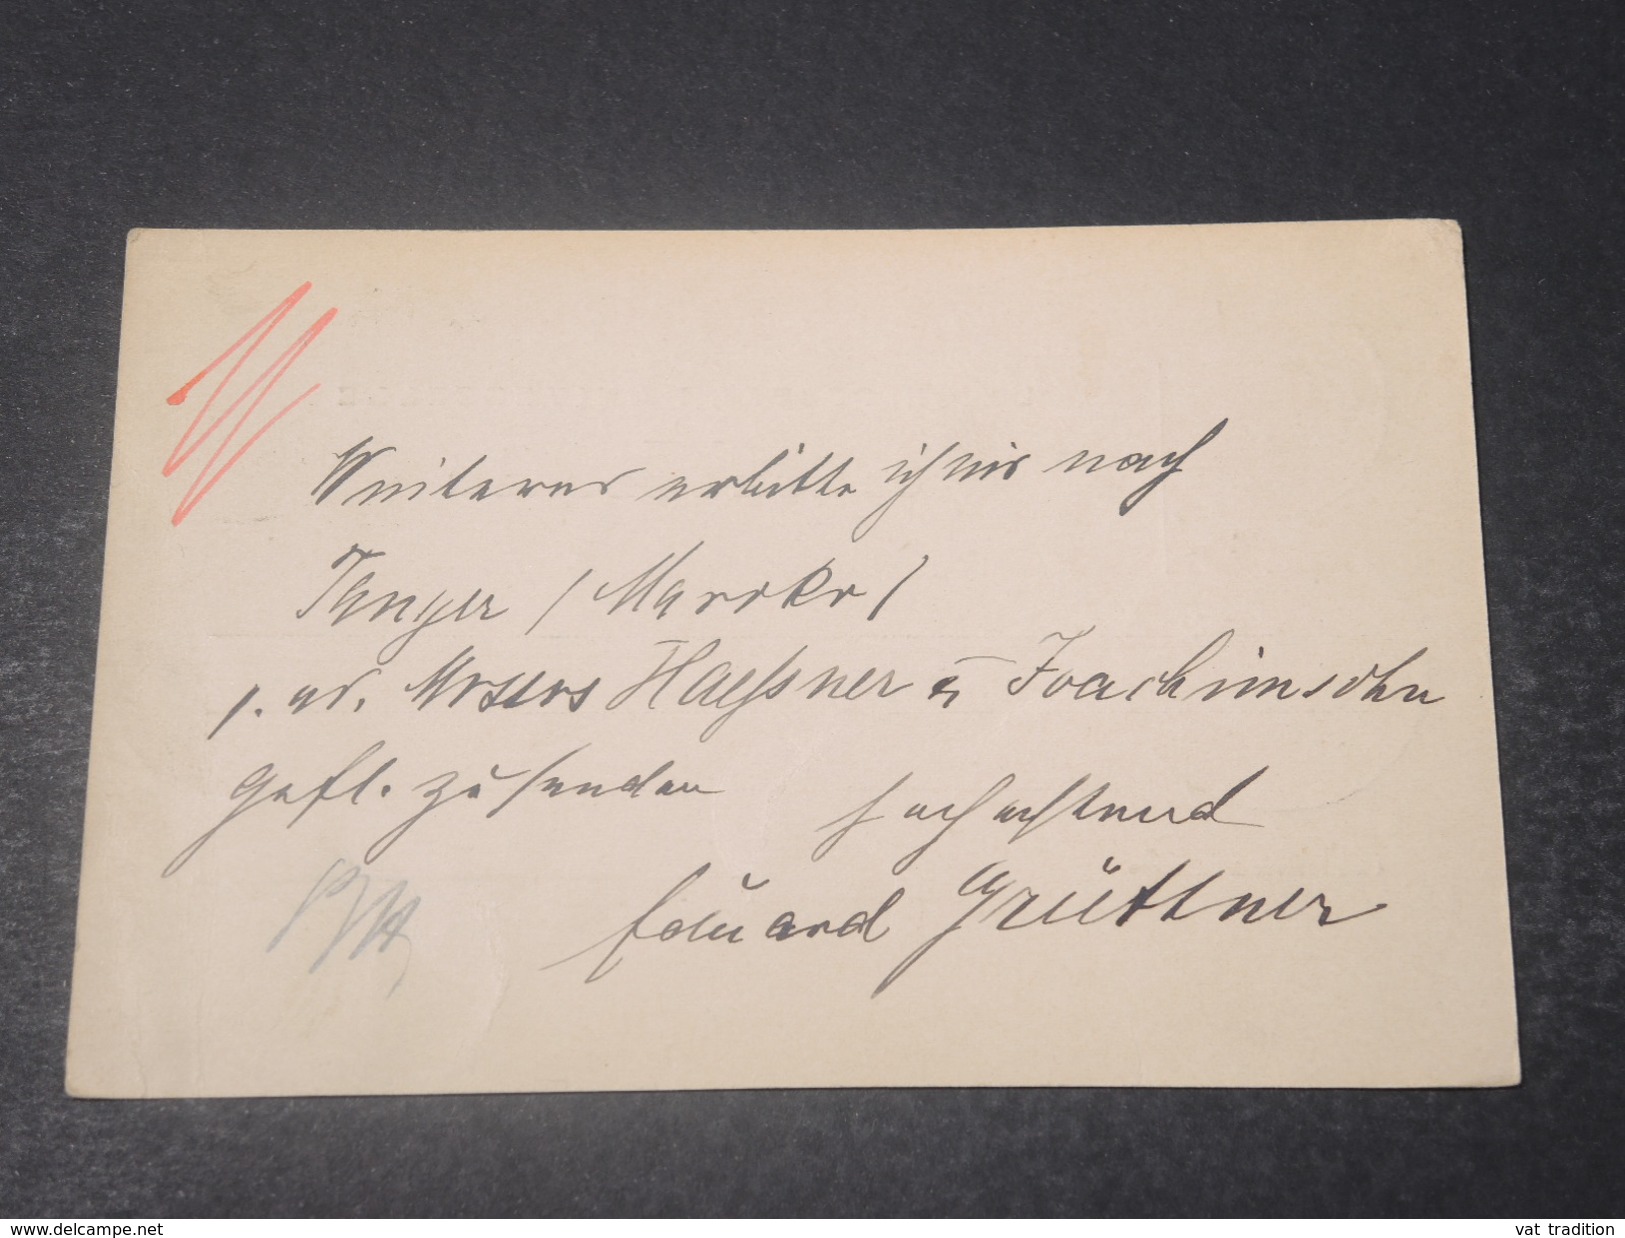 Weiteres erbitte ich mir nach
Tanger / Marokko /
p. ad. Messrs Haessner & Joachimsohn
gefl. zu senden
Hochachtend
Eduard Grüttner
www.delcampe.net
vat tradition